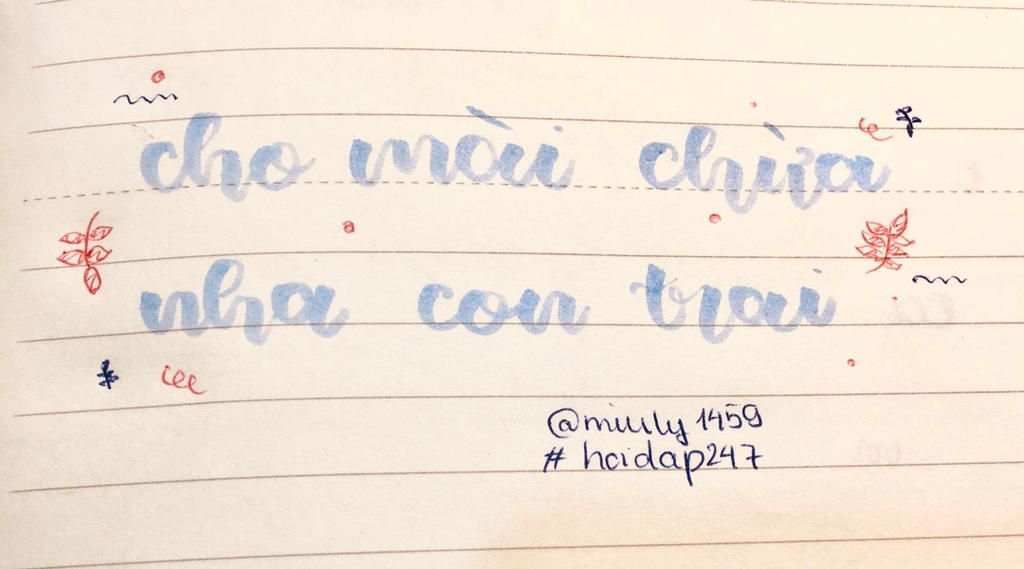 cho mài chừa
nha con trai
@miuly1459
#hoidap247